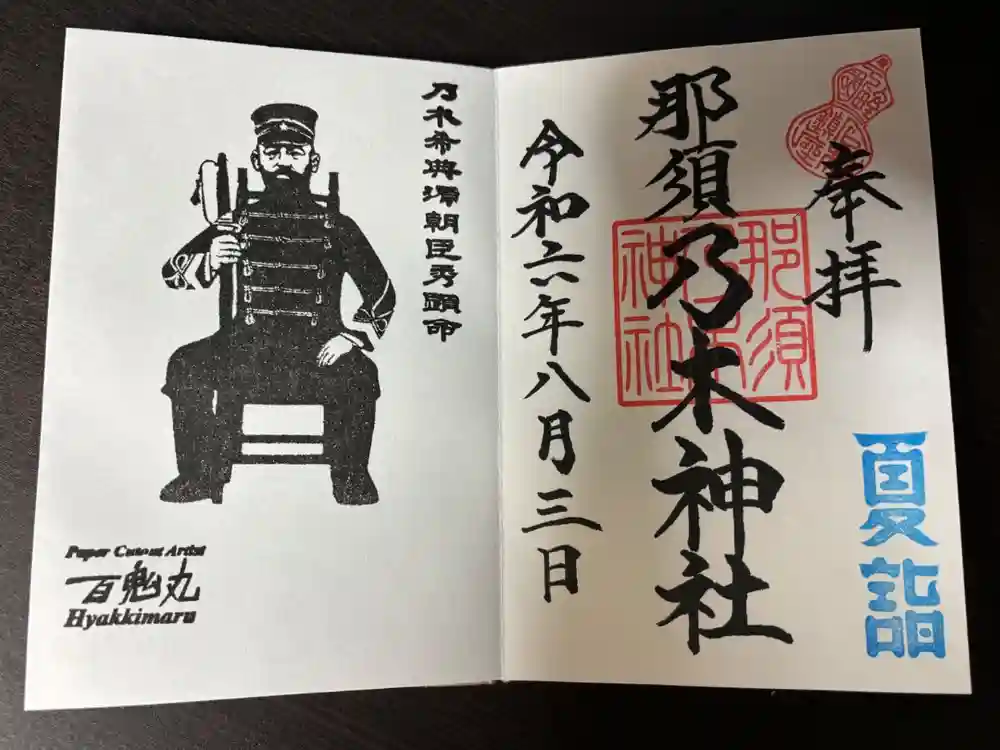 奉拝
那須乃木神社
令和六年八月三日
夏詣
那須
神社
乃木希典源朝臣秀顕命
Paper Cutout Artist
百鬼丸
Hyakkimaru